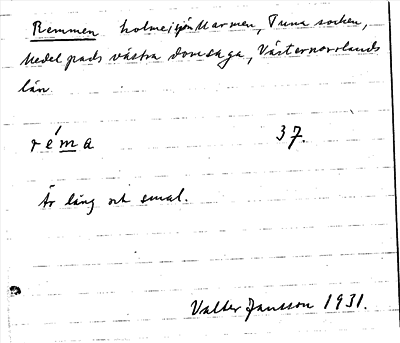 Remmen holme i sjön Marmen, Tuna socken,
Medelpads västra domsaga, Västernorrlands
län.
réma 37.
Är lång och smal.
Valter Jansson 1931.